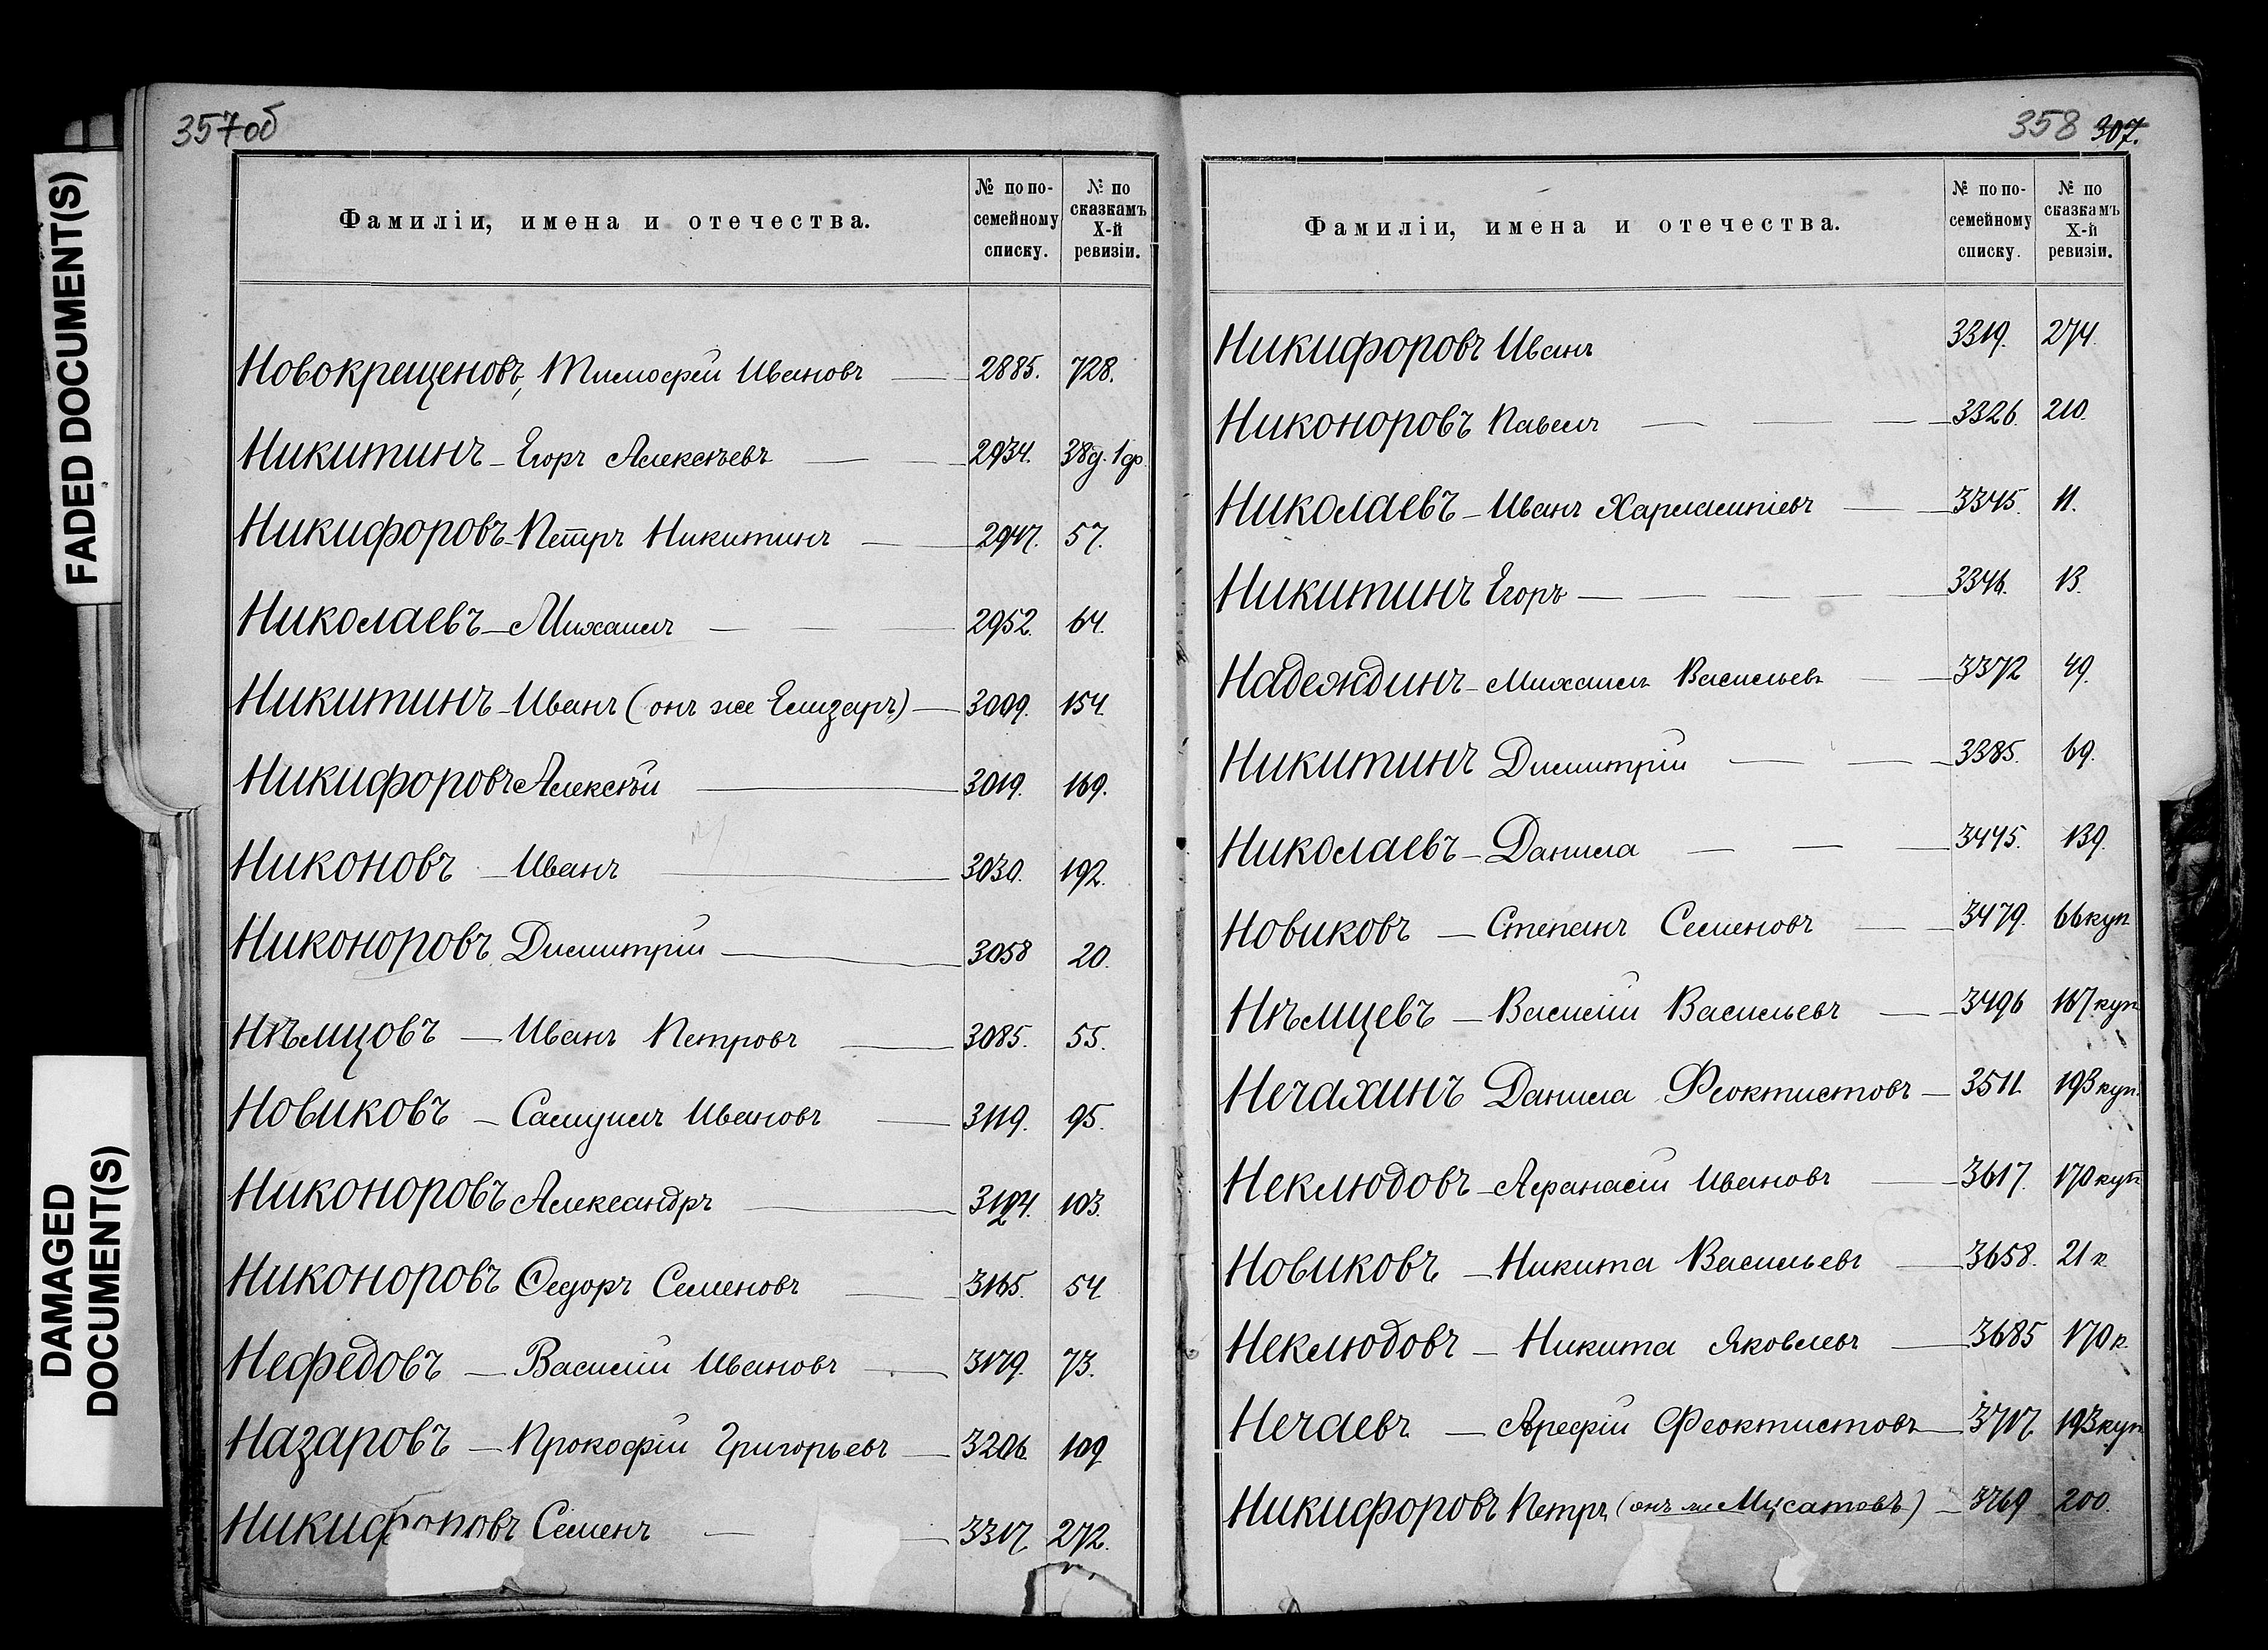 357об
Фамиліи, имена и отечества.
№ по по-
семейному
списку.
№ по
сказкамъ
X-й
ревизіи.
Новокрещеновъ, Тимофей Ивановъ 2885. 728.
Никитинъ - Егоръ Алексѣевъ 2934. 38д. 1ф
Никифоровъ - Петръ Никитинъ 2947. 57.
Николаевъ - Михаилъ 2952. 64.
Никитинъ - Иванъ (онъ же Елизаръ) 3009. 154.
Никифоровъ Алексѣй 3019. 169.
Никоновъ - Иванъ 3030. 192.
Никоноровъ Димитрій 3058 20.
Нѣмцовъ - Иванъ Петровъ 3085. 55.
Новиковъ - Самуилъ Ивановъ 3119. 95.
Никоноровъ Александръ 3124. 103.
Никоноровъ Ѳедоръ Семеновъ 3165. 54.
Нефедовъ - Василій Ивановъ 3179. 73.
Назаровъ - Прокофій Григорьевъ 3206. 109
Никифоровъ Семенъ 3317. 272.
358 307.
Фамиліи, имена и отечества.
№ по по-
семейному
списку.
№ по
сказкамъ
X-й
ревизіи.
Никифоровъ Иванъ 3319. 274.
Никоноровъ Павелъ 3326. 210.
Николаевъ - Иванъ Харлампіевъ 3345. 11.
Никитинъ Егоръ 3346. 13.
Надеждинъ - Михаилъ Васильевъ 3372 49.
Никитинъ Димитрій 3385. 69.
Николаевъ - Данила 3445. 139.
Новиковъ - Степанъ Семеновъ 3479. 66 куп
Нѣмцевъ - Василій Васильевъ 3496 167 куп
Нечахинъ Данила Феоктистовъ 3511. 193 куп.
Неклюдовъ - Афанасій Ивановъ 3617. 170 куп
Новиковъ - Никита Васильевъ 3658. 21 к
Неклюдовъ - Никита Яковлевъ 3685 170 к.
Нечаевъ - Арефій Феоктистовъ 3717. 193 куп
Никифоровъ Петръ (онъ же Мусатовъ) 3769 200.
FADED DOCUMENT(S)
DAMAGED
DOCUMENT(S)